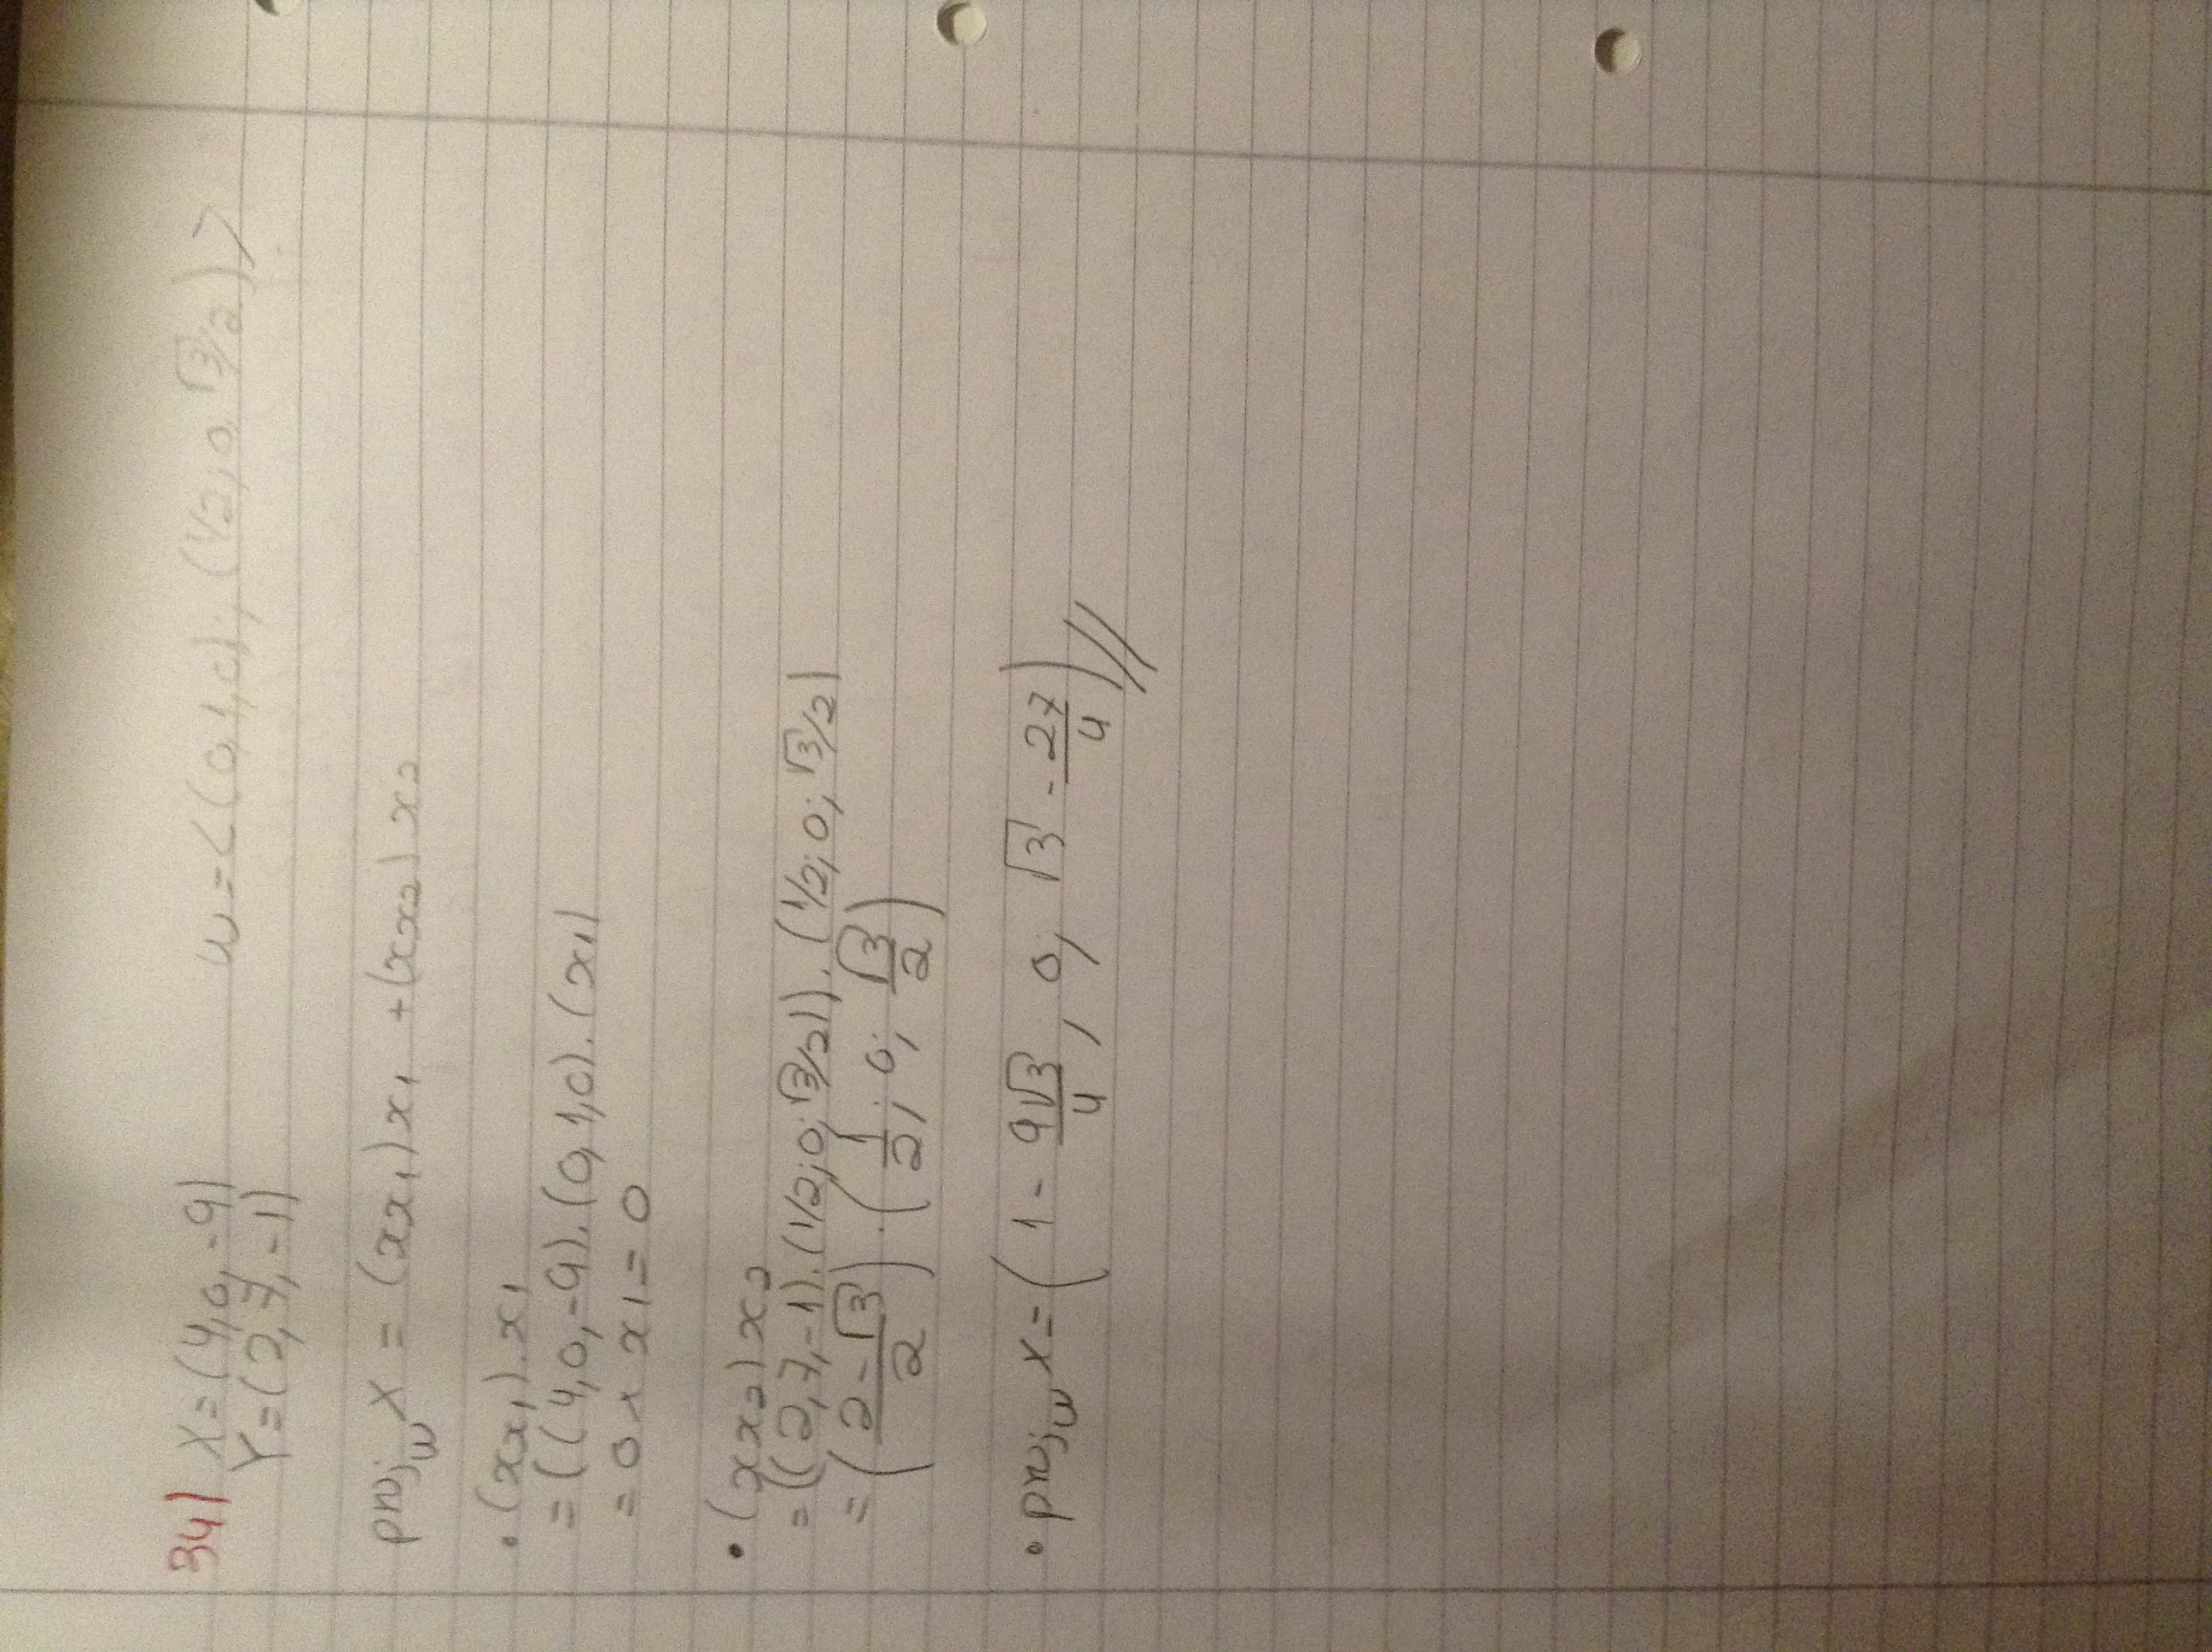 34) X=(4,0,-9) W=<(0,1,0); (1/2;0,√3/2)>
Y=(2,7,-1)
projw X = (xx1)x1 +(xx2)x2
• (xx1).x1
=((4,0,-9).(0,1,0).(x1)
= 0 × x1 = 0
• (xx2)x2
=((2,7,-1).(1/2;0;√3/2)).(1/2;0;√3/2)
=((2-√3)/2).(1/2;0;√3/2)
• projw X=(1 - 9√3/4, 0, √3 - 27/4)//